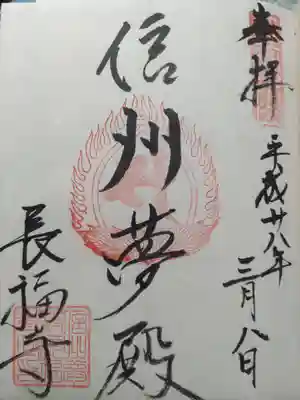 奉拝
平成廿八年
三月八日
信州夢殿
長福寺